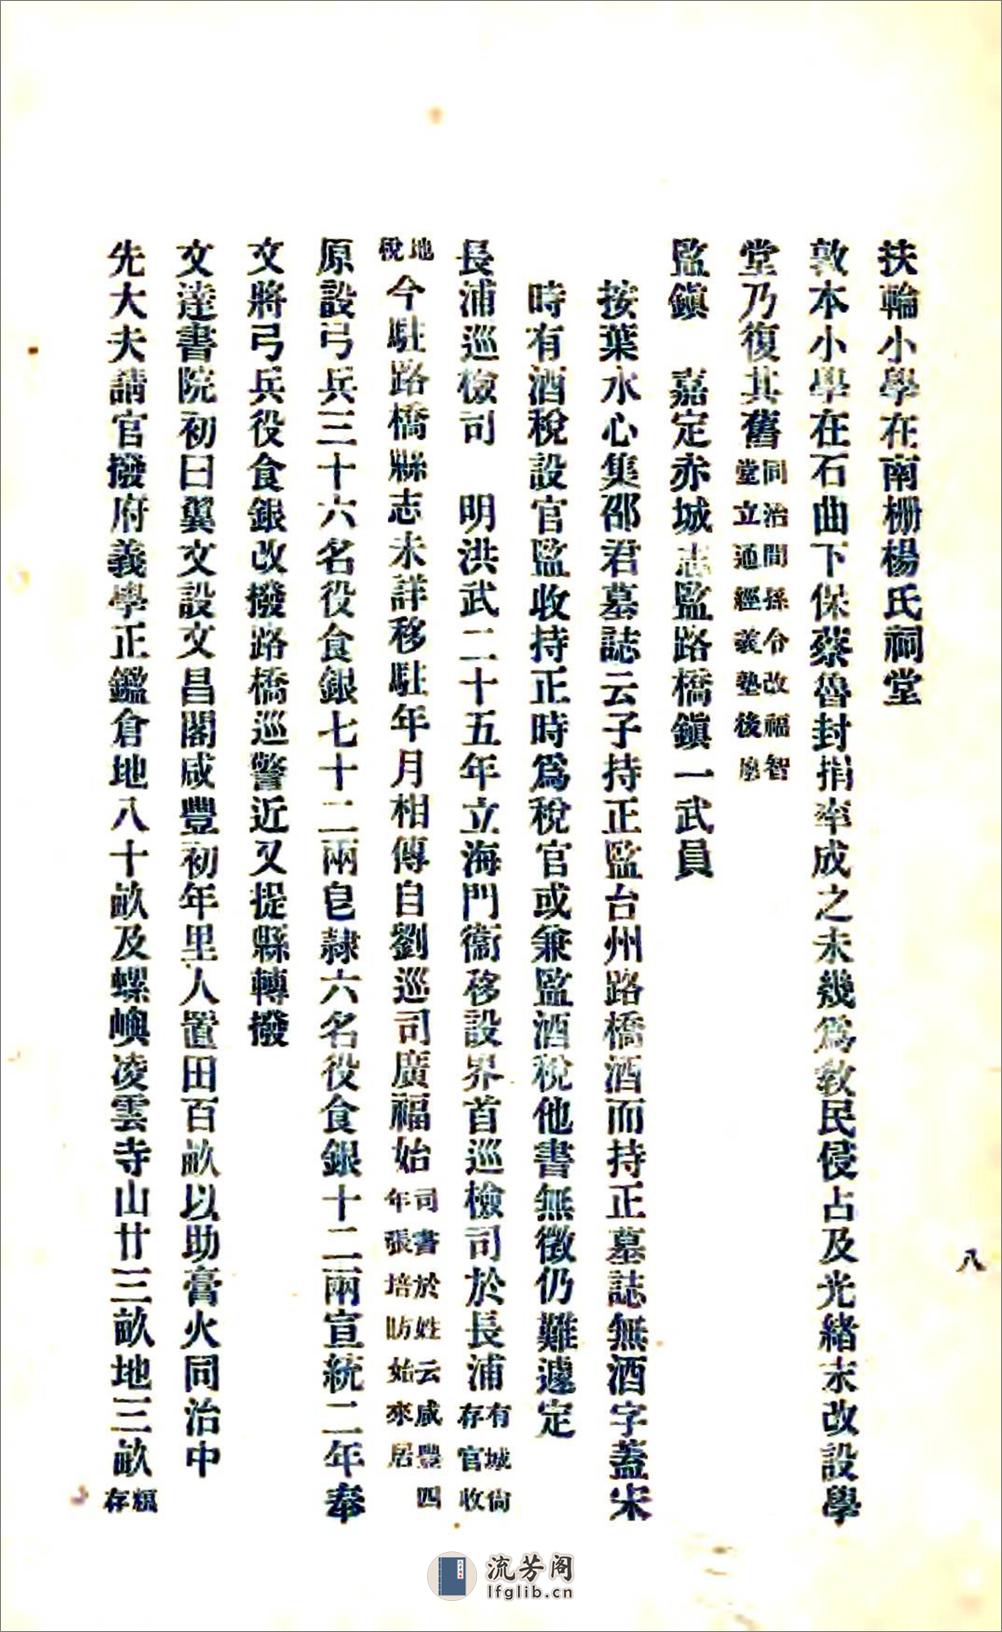 扶輪小學在南栅楊氏祠堂
敦本小學在石曲下保蔡魯封捐率成之未幾爲敎民侵占及光緒末改設學
堂乃復其舊同治間孫令改福智堂立通經義塾後廢
監鎭　嘉定赤城志監路橋鎭一武員
按葉水心集邵君墓誌云子持正監台州路橋酒而持正墓誌無酒字蓋宋
時有酒稅設官監收持正時爲稅官或兼監酒稅他書無徵仍難遽定
長浦巡檢司　明洪武二十五年立海門衞移設界首巡檢司於長浦有城尙存官收
地稅今駐路橋縣志未詳移駐年月相傳自劉巡司廣福始司書於姓云咸豐四年張培昉始來居
原設弓兵三十六名役食銀七十二兩皂隷六名役食銀十二兩宣統二年奉
文將弓兵役食銀改撥路橋巡警近又提縣轉撥
文達書院初曰翼文設文昌閣咸豐初年里人置田百畝以助膏火同治中
先大夫請官撥府義學正鑑倉地八十畝及螺嶼凌雲寺山廿三畝地三畝額存
八
流芳阁
lfglib.cn